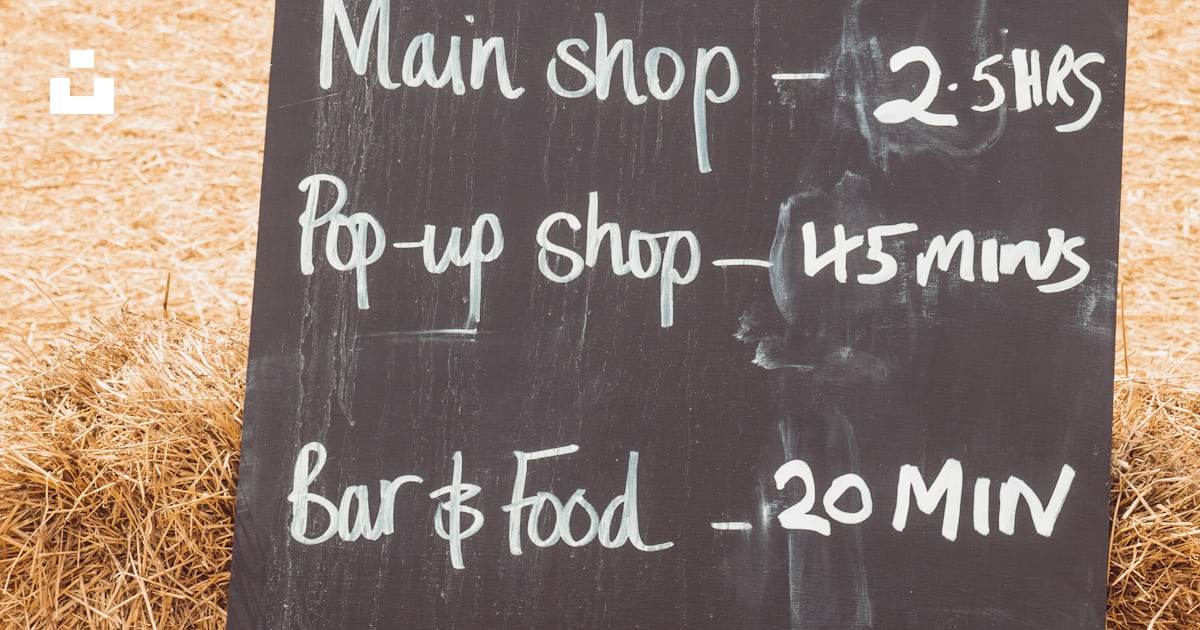 Main shop – 2.5HRS
Pop-up shop – 45 mins
Bar & Food – 20 MIN